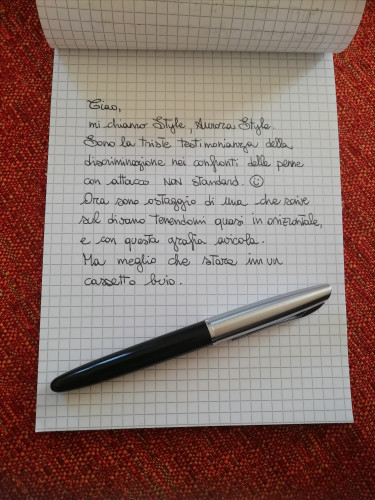 Ciao,
mi chiamo Style, Aurora Style.
Sono la triste testimonianza della
discriminazione nei confronti delle penne
con attacco NON standard. ☺
Ora sono ostaggio di una che scrive
sul divano tenendomi quasi in orizzontale,
e con questa grafia avicola.
Ma meglio che stare in un
cassetto buio.